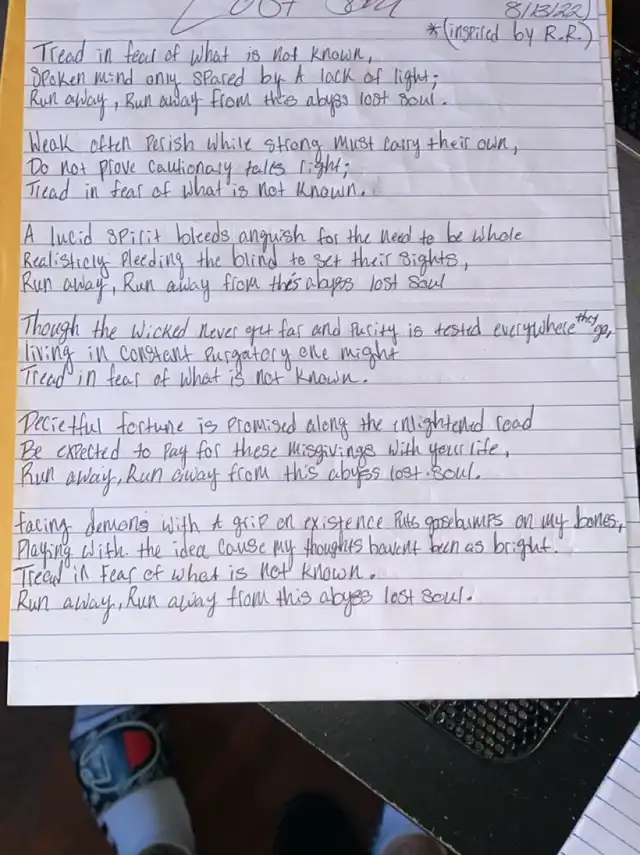 Lost Soul
8/13/22
*(inspired by R.R.)
Tread in fear of what is not known,
Spoken mind only spared by A lack of light;
Run away, Run away from this abyss lost soul.
Weak often Perish while strong must carry their own,
Do not prove cautionary tales right;
Tread in fear of what is not known.
A lucid spirit bleeds anguish for the need to be whole
Realisticly Pleeding the blind to set their sights,
Run away, Run away from this abyss lost soul
Though the wicked never get far and Purity is tested everywhere they go,
living in constant Purgatory one might
Tread in fear of what is not known.
Decietful fortune is Promised along the enlightened road
Be expected to Pay for these misgivings with your life,
Run away, Run away from this abyss lost soul.
facing demons with A grip on existence Puts goosebumps on my bones,
Playing with the idea cause my thoughts havent been as bright.
Tread in fear of what is not known.
Run away, Run away from this abyss lost soul.